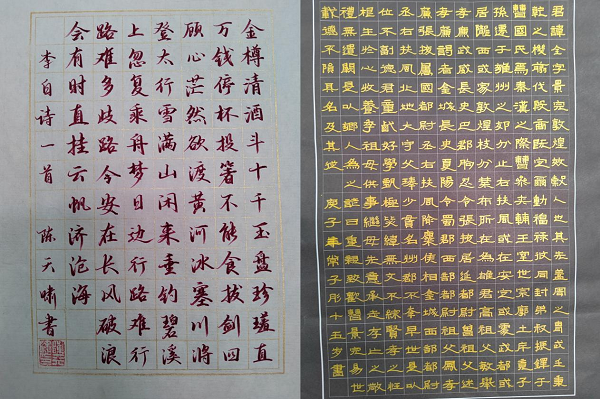 金樽清酒斗十千玉盘珍馐直
万钱停杯投箸不能食拔剑四
顾心茫然欲渡黄河冰塞川将
登太行雪满山闲来垂钓碧溪
上忽复乘舟梦日边行路难行
路难多歧路今安在长风破浪
会有时直挂云帆济沧海
李白诗一首 陈天啸书
君諱全字景完敦煌效穀人也其先蓋周之胄武王秉
乾之機翦伐殷商既定爾勳福祿攸同封弟叔振鐸于
曹國氏焉秦漢之際曹參夾輔王室世宗廓土斥竟子
孫遷于雍州之郊分止右扶風或在安定或處武都或
居隴西或家敦煌枝分葉布所在為雄君高祖父敏舉
孝廉武威長史巴郡朐忍令張掖居延都尉曾祖父述
孝廉謁者金城長史夏陽令蜀郡西部都尉祖父鳳孝
廉張掖屬國都尉丞右扶風隃糜侯相金城西部都尉
丞右扶風北地大守父琫少貫名州郡不幸早世是以
位不副德君童齔好學甄極毖緯無文不綜賢孝之性
根生於心收養季祖母供事繼母先意承志存亡之敬
禮無遺闕是以鄉人為之諺曰重親致歡曹景完易世
載德不隕其名及其從 庚子年 常子彤十五歲書